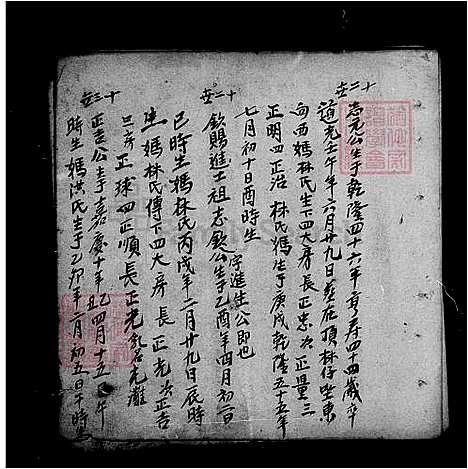 十二世
志元公生于乾隆四十六年享寿四十四歲卒
道光壬午年六月廿九日葬在頭林仔坐東
向西媽林氏生下四大房長正忠次正量三
正明四正治林氏媽生于庚戌乾隆五十五年
七月初十日酉時生
十二世 字進仕公即也
欽賜進士祖志欽公生于乙酉年四月初二日
巳時生媽林氏丙戌年二月廿九日辰時
生媽林氏傳下四大房長正光次正吉
三房正球四正順長正光乳名光灘
十三世
正吉公生于嘉慶十年乙丑四月十五日午
時生媽洪氏生于乙卯年二月初五日午時生